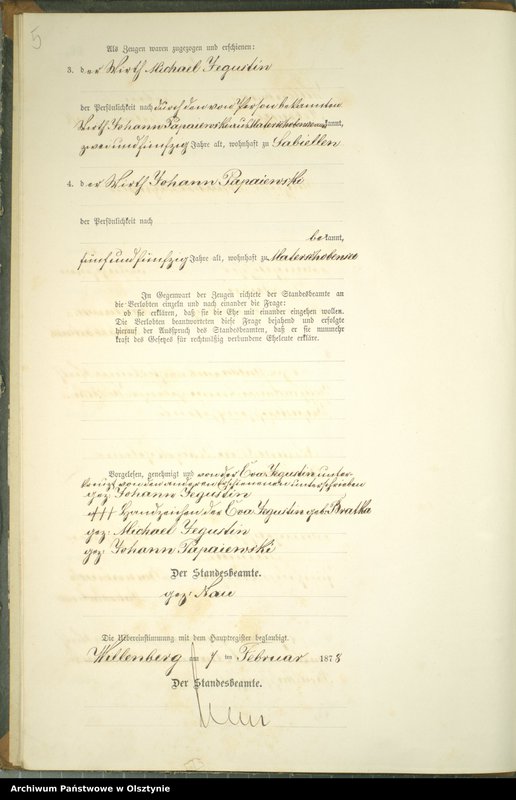 5
Als Zeugen waren zugezogen und erschienen:
3. der Wirth Michael Jegustin
der Persönlichkeit nach durch den von Person bekannten
Wirth Johann Papaiewski aus Materschobensee kannt,
zweiundfünfzig Jahre alt, wohnhaft zu Sabiellen
4. der Wirth Johann Papaiewski
der Persönlichkeit nach
bekannt,
fünfundfünfzig Jahre alt, wohnhaft zu Materschobensee
In Gegenwart der Zeugen richtete der Standesbeamte an
die Verlobten einzeln und nach einander die Frage:
ob sie erklären, daß sie die Ehe mit einander eingehen wollen.
Die Verlobten beantworteten diese Frage bejahend und erfolgte
hierauf der Ausspruch des Standesbeamten, daß er sie nunmehr
kraft des Gesetzes für rechtmäßig verbundene Eheleute erkläre.
Vorgelesen, genehmigt und von der Eva Jegustin unter-
kreuzt von den anderen Erschienenen unterschrieben
gez: Johann Jegustin
+++ Handzeichen der Eva Jegustin geb: Bratka
gez: Michael Jegustin
gez: Johann Papaiewski
Der Standesbeamte.
gez: Nau
Die Uebereinstimmung mit dem Hauptregister beglaubigt.
Willenberg am 7 ten Februar 1878
Der Standesbeamte.
Archiwum Państwowe w Olsztynie